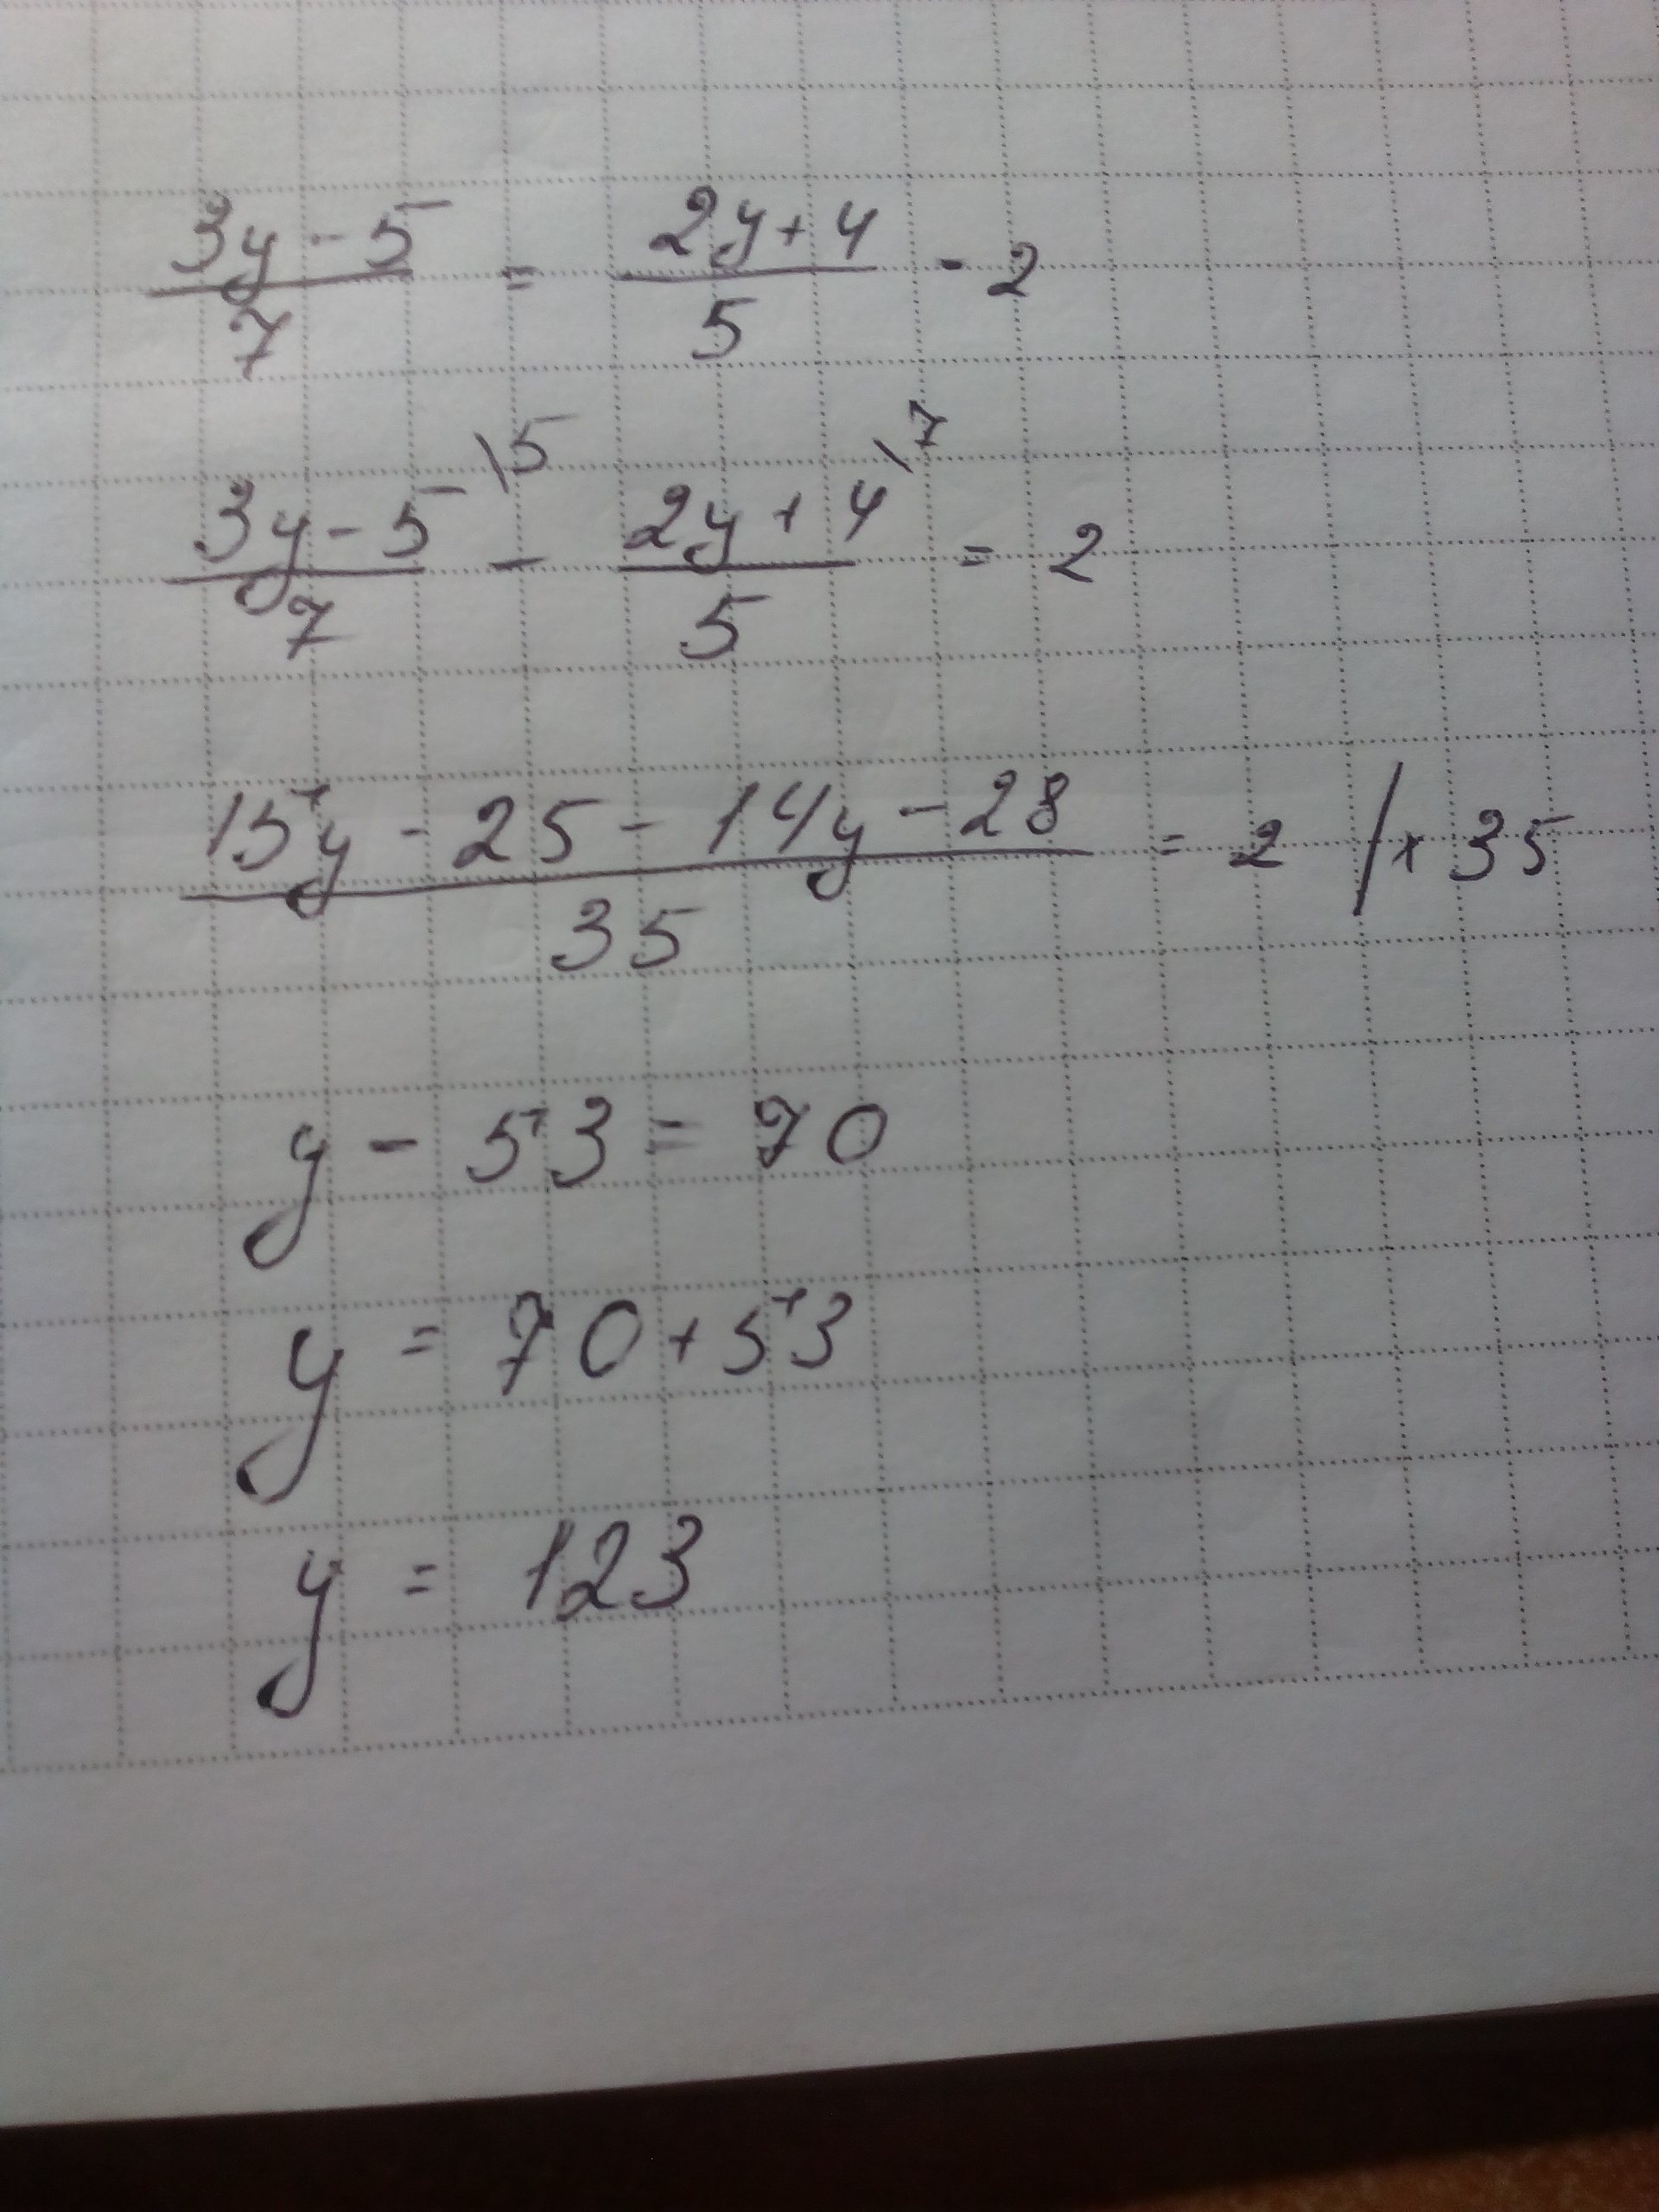 (3y - 5)/7 = (2y + 4)/5 - 2
(3y - 5)/7 \5 - (2y + 4)/5 \7 = 2
(15y - 25 - 14y - 28)/35 = 2 / x 35
y - 53 = 70
y = 70 + 53
y = 123